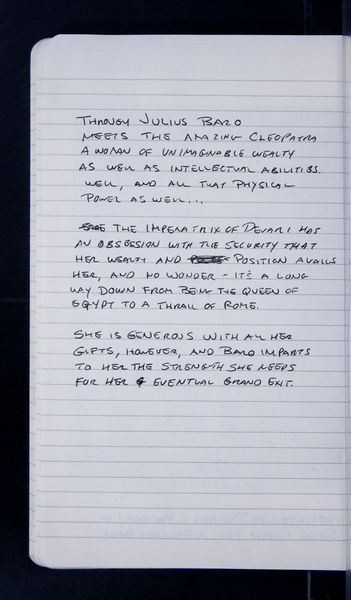 THROUGH JULIUS BARO
MEETS THE AMAZING CLEOPATRA
A WOMAN OF UNIMAGINABLE WEALTH
AS WELL AS INTELLECTUAL ABILITIES.
WELL, AND ALL THAT PHYSICAL
POWER AS WELL...
THE IMPERATRIX OF DENARI HAS
AN OBSESSION WITH THE SECURITY THAT
HER WEALTH AND POSITION AVAILS
HER, AND NO WONDER - IT'S A LONG
WAY DOWN FROM BEING THE QUEEN OF
EGYPT TO A THRALL OF ROME.
SHE IS GENEROUS WITH ALL HER
GIFTS, HOWEVER, AND BARO IMPARTS
TO HER THE STRENGTH SHE NEEDS
FOR HER EVENTUAL GRAND EXIT.